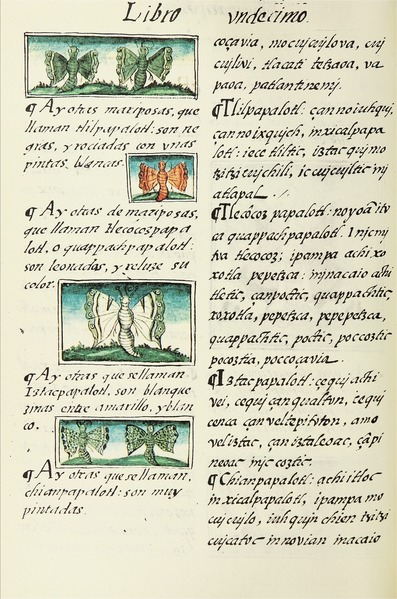 Libro vndecimo.
¶ Ay otras mariposas, que
llaman tlilpapalotl: son ne
gras, y rociadas con vnas
pintas blancas.
¶ Ay otras de mariposas,
que llaman tlecocozpapa
lotl, o quappachpapalotl:
son leonadas, y reluze su
color.
¶ Ay otras que se llaman
Iztacpapalotl, son blanque
zinas entre amarillo, y blan
co.
¶ Ay otras que se llaman,
chianpapalotl: son muy
pintadas.
coçavia, mocuicuilova, cui
cuilivi, tlacati tetzaoa, va
paoa, patlantinemj.
¶ Tlilpapalotl: çan no iuhquj,
can no ixqujch, in xicalpapa
lotl: iece tliltic, iztac qujmo
tzitzicuichili, ic cujcujltic inj
atlapal.
¶ Tlecocoz papalotl: no yoã itv
ca quappachpapalotl. Injc mj
tva tlecocoz, ipampa achi xo
xotla pepetzca: in jnacaio achi
tletic, canpoctic, quappachtic,
xoxotla, pepetzca, pepepetzca,
quappachtic, poctic, poccoztic
pocoztia, poccoçavia.
¶ Iztac papalotl: cequj achi
vei, cequj çan qualtvn, cequj
cenca çan veltepitvton, amo
vel iztac, çan iztaleoac, çã pi
neoac injc coztic.
¶ Chianpapalotl: achi itloc
in xicalpapalotl, ipampa mo
cujcujlo, iuhqujn chien tzitzi
cujcatoc in novian inacaio